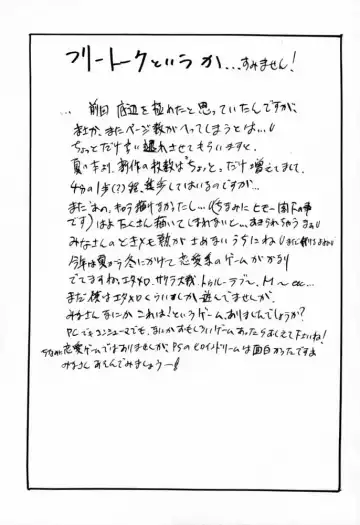 フリートークというか…すみません!
… 前回 底辺を極めたと思っていたんですが、
まさか、またページ数がへってしまうとは…
ちょっとだけ言い遅れさせてもらいますと
夏の本より、新作の枚数は"ちょっとだけ増えてまして
4分の1歩(?)程、進歩してはいるのですが…
まだあの、キャラ描けなかったし…(ちなみにヒモー圏人の事
です)はよたくさん描いてしまわないと…あきられちゃうまぁ
みなさんのときメモ熱がさめないうちにね
今年は夏から冬にかけて恋愛系のゲームがかなり
でてますね、エタメロ、サクラ大戦、トゥルーラブ〜、M〜 etc…
まだ僕はエタメロくらいしか遊んでませんが、
みなさんなにか これは!というゲーム、ありましたでしょうか?
PCでもコンシューマでも、なにかおもしろいゲームあったらおしえて下さいね!
ちなみに恋愛ゲームではありませんが、PSのヒロインドリームは面白かったですよ
みなさん あそんでみましょうー!!